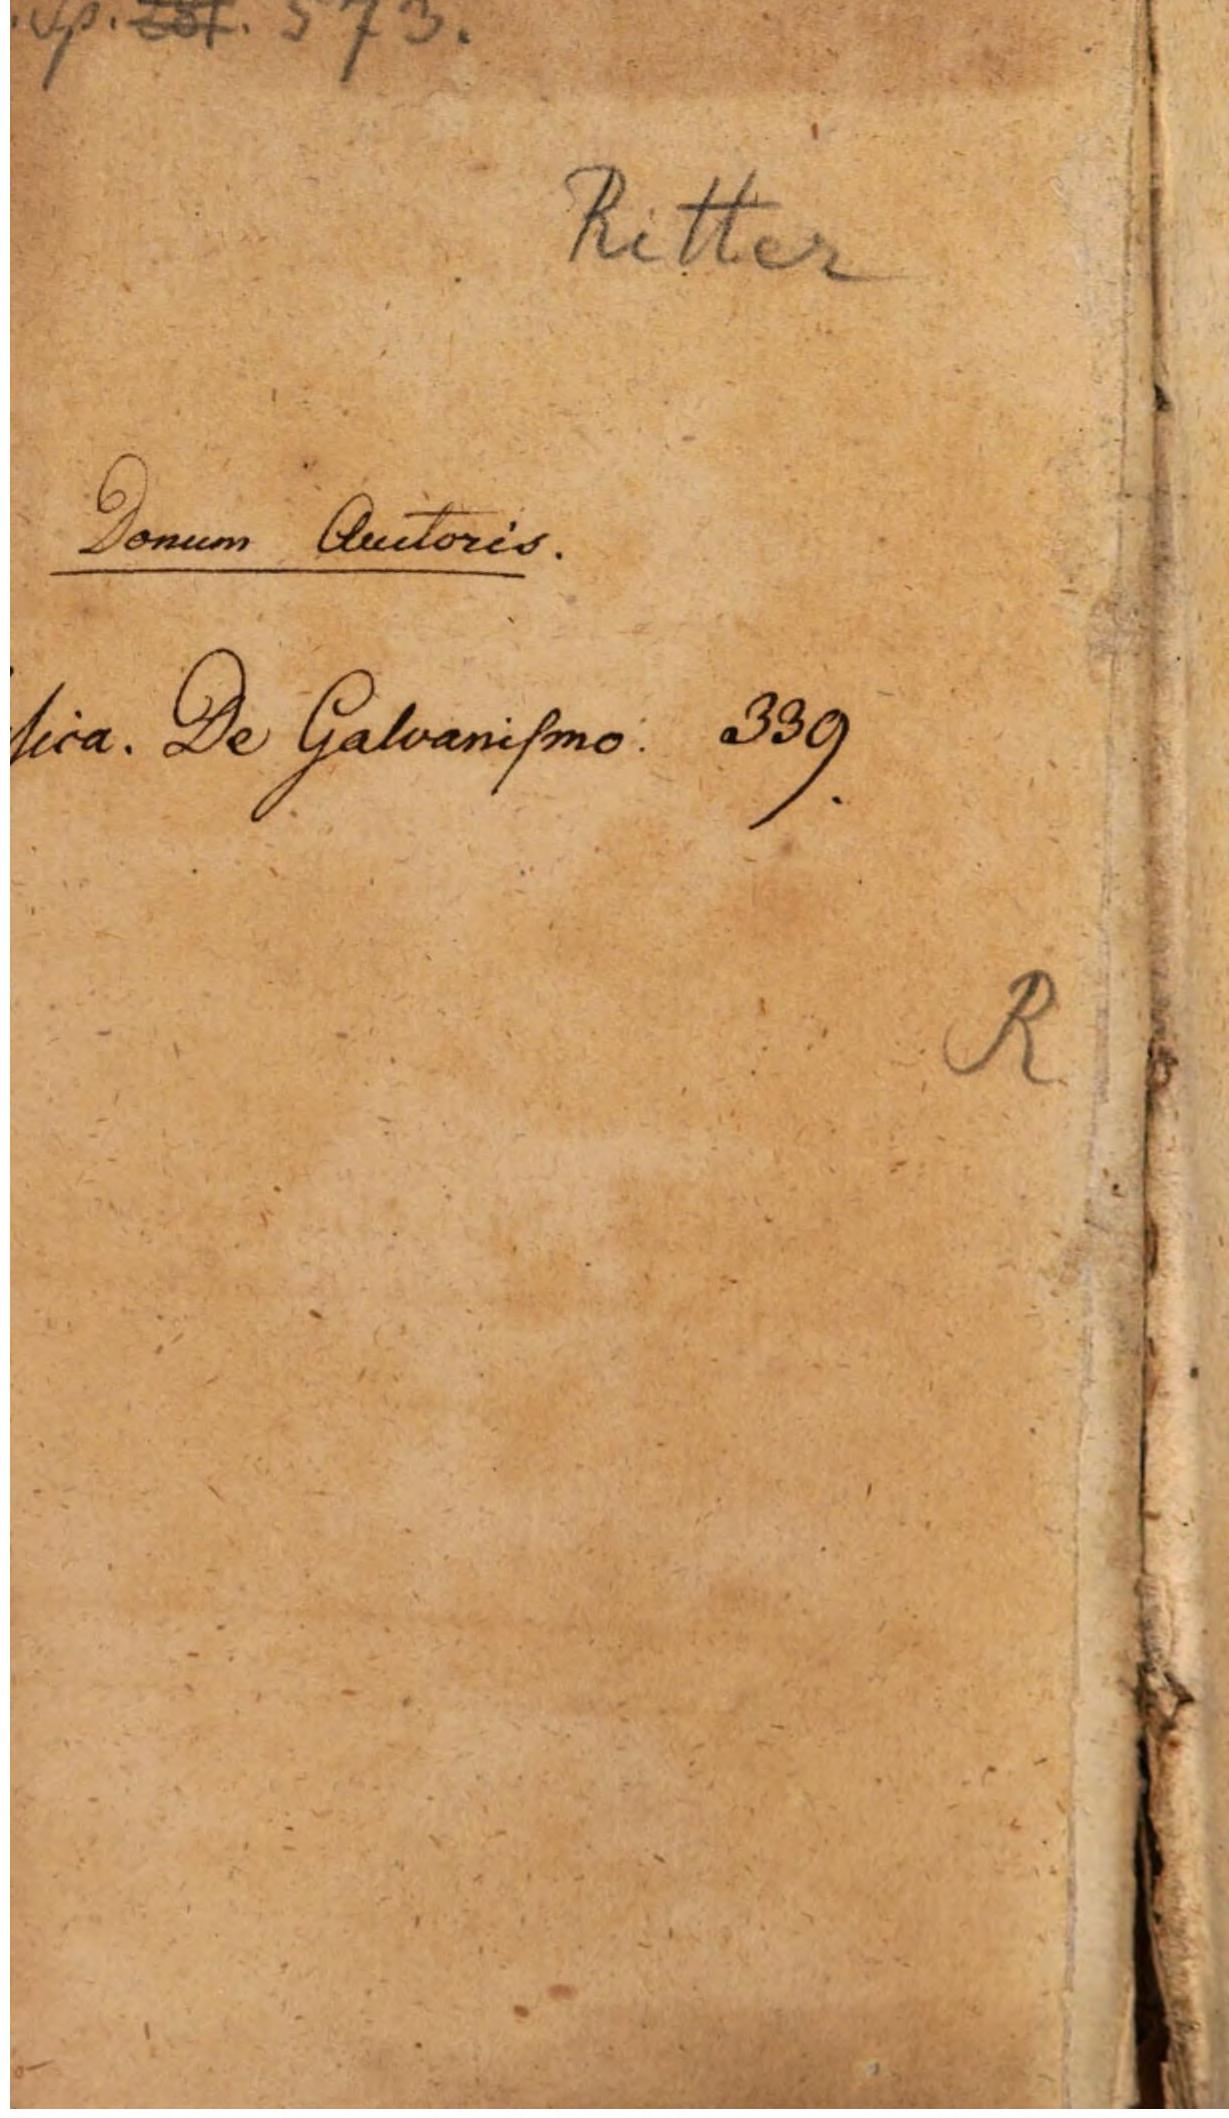 . 573.
Ritter
Donum Auctoris.
sica. De Galvaniſmo. 339.
R